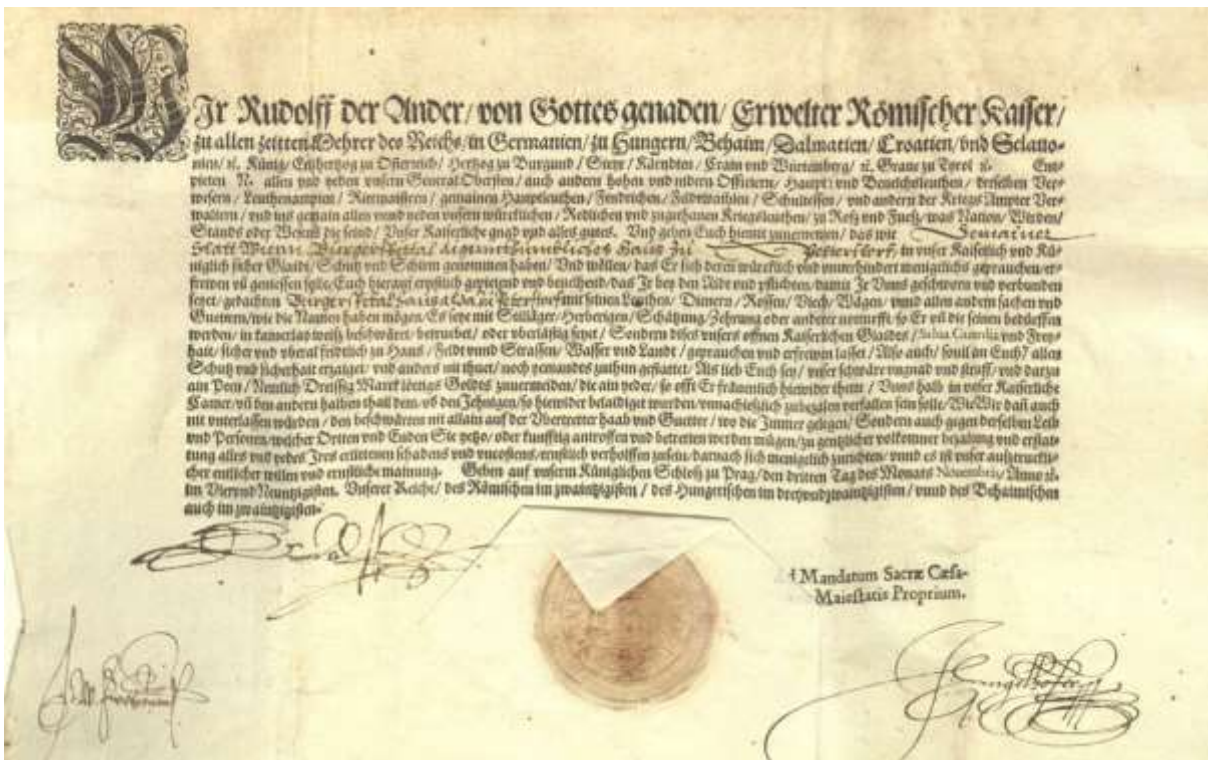 WIr Rudolff der Ander / von Gottes genaden / Erwelter Römischer Kaiser /
zu allen zeitten Mehrer des Reichs / in Germanien / zu Hungern / Behaim / Dalmatien / Croatien / vnd Sclauo-
nien / ꝛc. Künig / Ertzhertzog zu Osterreich / Hertzog zu Burgund / Steyr / Kärndten / Crain vnd Würtemberg / ꝛc. Graue zu Tyrol ꝛc. Ent-
pieten N. allen vnd yeden vnsern General Obersten / auch andern hohen vnd nidern Officiern / Haupt: vnd Beuelchsleuthen / derselben Ver-
wesern / Leuthenampten / Ritmaistern / gemainen Hauptleuthen / Fendrichen / Feldwaibln / Schultessen / vnd andern der Kriegs Ampter Ver-
waltern / vnd ins gemain allen vnnd yeden vnsern würcklichen / Redlichen vnd zugethanen Kriegsleuthen / zu Roß vnd Fueß / was Nation / Wirden /
Stands oder Wesens die seind / Vnser Kaiserliche gnad vnd alles guets. Vnd geben Euch hiemit zuuernemen / das wir
Statt Wienn Burgerspital, in vnser Kaiserlich vnd Kü-
niglich sicher Glaidt / Schutz vnd Schirm genommen haben / Vnd wöllen / das Er sich deren würcklich vnd vnuerhindert menigklichs geprauchen / er-
frewen vñ geniessen solle / Euch hierauf ernstlich gepietend vnd beuelhend / das Jr bey den Aidt vnd pflichten / damit Jr Vnns geschworn vnd verbunden
seyet / gedachten mit seinen Leuthen / Dienern / Rossen / Viech / Wägen / vnnd allen andern sachen vnd
Guettern / wie die Namen haben mögen / Es seye mit Stilläger / Herberigen / Schätzung / Zehrung oder anderer notturfft / so Er vñ die seinen bedürffen
werden / in kainerlay weiß beschwäret / betruebet / oder vberlästig seyet / Sondern dises vnsers offnen Kaiserlichen Glaidts / Salua Guardia vnd Frey-
hait / sicher vnd vberal fridtlich zu Hauß / Feldt vnnd Strassen / Wasser vnd Landt / geprauchen vnd erfrewen lasset / Also auch / souil an Euch / allen
Schutz vnd sicherhait erzaiget / vnd anders nit thuet / noch yemandes zuthun gestattet / Als lieb Euch sey / vnser schwäre vngnad vnd straff / vnd darzu
ain Peen / Nemlich Dreissig Marck lötigs Goldes zuuermeiden / die ain yeder / so offt Er fräuenlich hiewider thette / Vnns halb in vnser Kaiserliche
Camer / vñ den andern halben thail dem, oder den Jehnigen / so hiewider belaidiget wurden / vnnachläßlich zubezalen verfallen sein solle / Wie Wir dañ auch
nit vnterlassen würden / den beschwärten nit allain auf der Vbertretter haab vnd Guetter / wo die Jmmer gelegen / Sondern auch gegen derselben Leib
vnd Personen / welcher Orrten vnd Enden Sie yetzo / oder kunfftig antroffen vnd betretten werden mügen / zu gentzlicher volkomner bezalung vnd erstat-
tung alles vnd yedes Jres erlittenen schadens vnd vncostens / ernstlich verholffen zusein / darnach sich menigklich zurichten / vnnd es ist vnser außtruckli-
cher entlicher willen vnd ernstliche mainung. Geben auf vnserm Küniglichen Schloß zu Prag / den dritten Tag des Monats Nouembris / Anno ꝛc.
im Vier vnd Neuntzigisten. Vnserer Reiche / des Römischen im zwaintzigisten / des Hungerischen im dreyvndzwaintzigisten / vnnd des Behaimischen
auch im zwaintzigisten.
Mandatum Sacræ Cæsa-
Maiestatis Proprium.